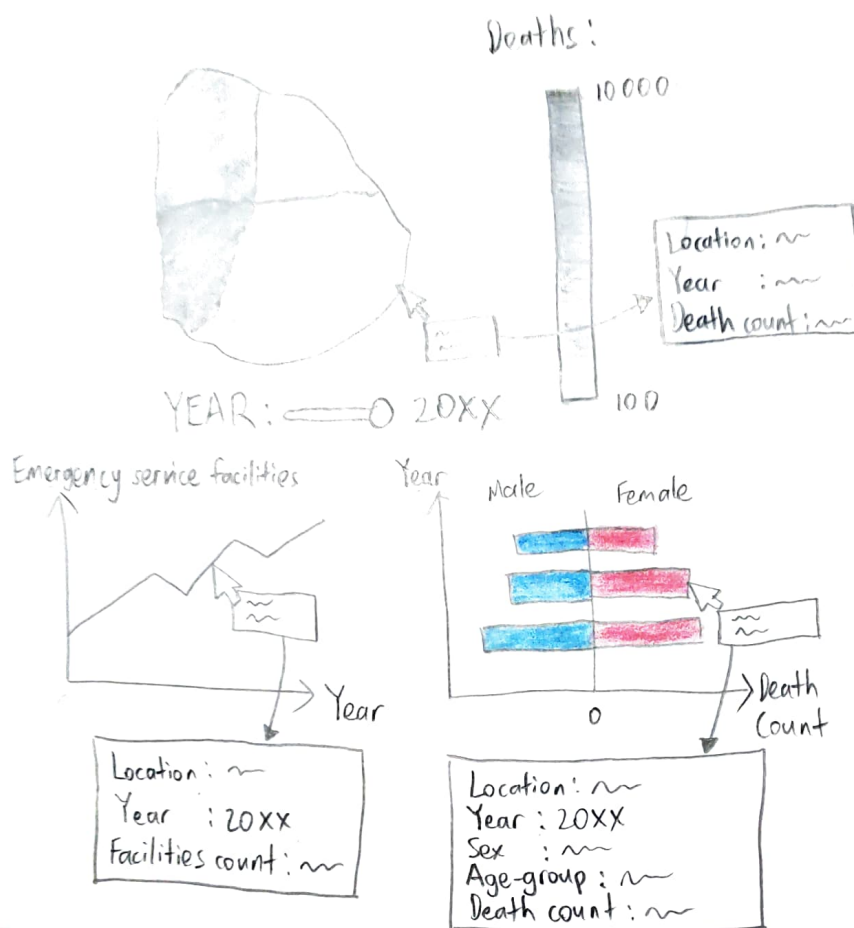 Deaths:
10000
Location:
Year :
Death count:
100
YEAR: 20XX
Emergency service facilities
Year
Location:
Year : 20XX
Facilities count:
Year
Male Female
0
Death
Count
Location:
Year : 20XX
Sex :
Age-group :
Death count :